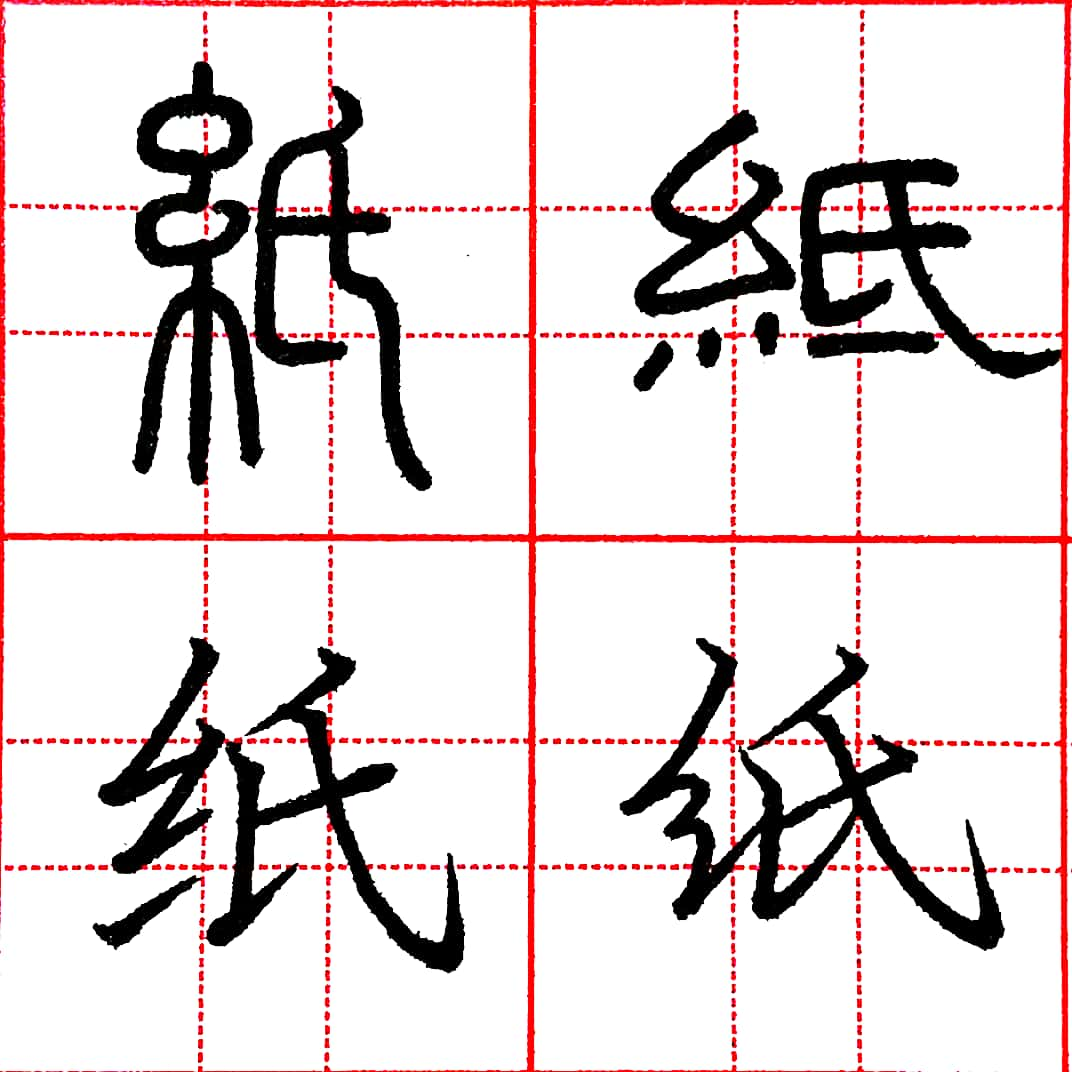 紙 紙
纸 纸